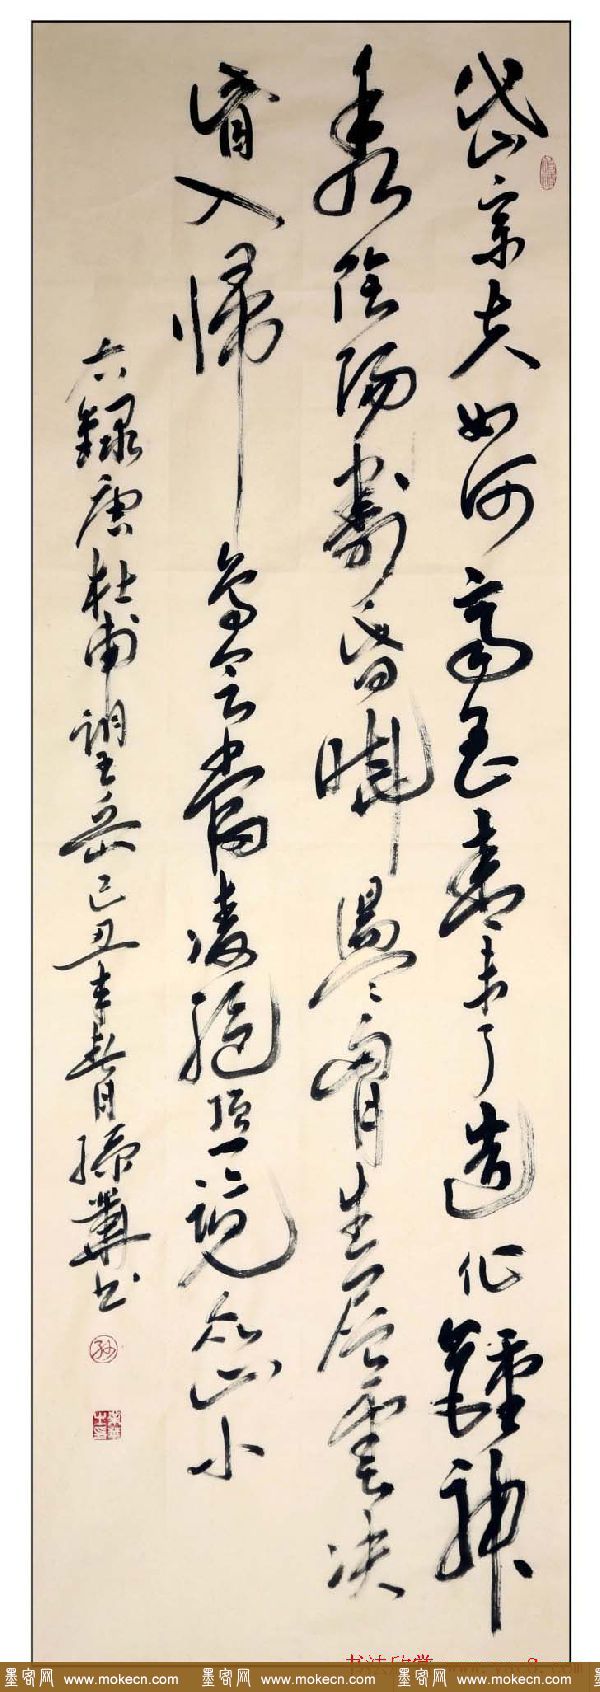 岱宗夫如何齊魯青未了造化鍾神
秀陰陽割昏曉盪胷生層雲決
眥入歸鳥會當凌絕頂一覽衆山小
右録唐杜甫望岳己丑年春月孫書
书法欣赏
墨客网 www.mokecn.com 墨客网 www.mokecn.com 墨客网 www.mokecn.com